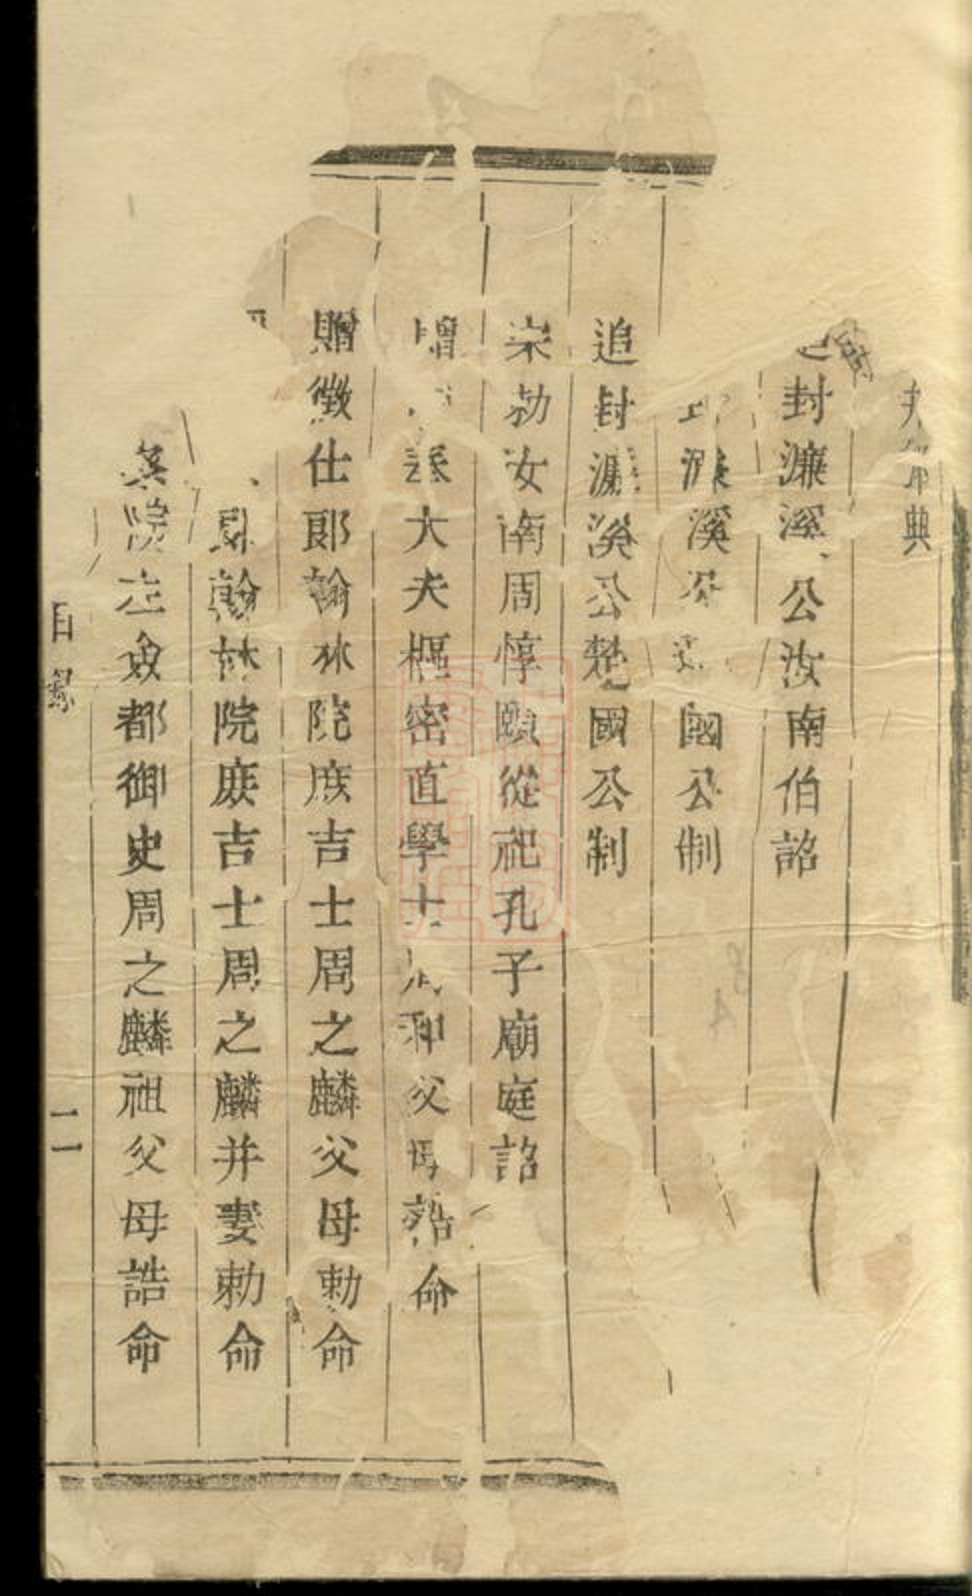 典
封濂溪公汝南伯詔
濂溪公國公制
追封濂溪公楚國公制
崇勅汝南周惇頤從祀孔子廟庭詔
贈大夫樞密直學士和父母誥命
贈徵仕郎翰林院庶吉士周之麟父母勅命
翰林院庶吉士周之麟并妻勅命
院左僉都御史周之麟祖父母誥命
目錄
二